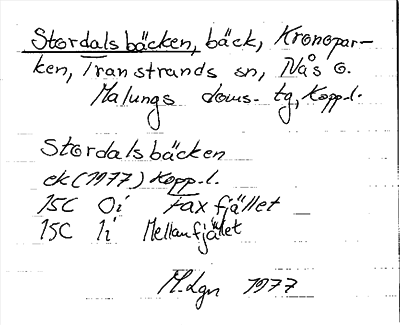 Stordalsbäcken, bäck, Kronopar-
ken, Transtrands sn, Nås o.
Malungs doms. tg, Kopp.l.
Stordalsbäcken
ek (1977) Kopp.l.
15C 0i Faxfjället
15C 1i Mellanfjället
M.Lgn 1977